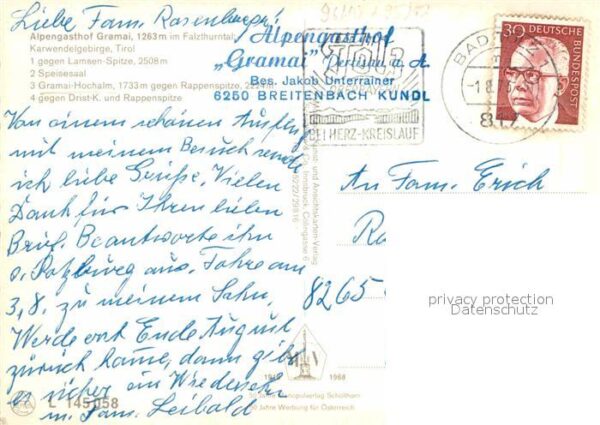 Liebe Fam. Rosenberger!
Alpengasthof Gramai, 1263 m im Falzthurntal,
Karwendelgebirge, Tirol
1 gegen Lamsen-Spitze, 2508 m
2 Speisesaal
3 Gramai-Hochalm, 1733 m gegen Rappenspitze,
4 gegen Drist-K. und Rappenspitze
Alpengasthof
„Gramai" Pertisau a. A.
Bes. Jakob Unterrainer
6250 BREITENBACH KUNDL
Von einem schönen Ausflug
mit meinem Besuch sende
ich liebe Grüße. Vielen
Dank für Ihren lieben
Brief. Beantworte ihn
v. Salzburg aus. Fahre am
3.8. zu meinem Sohn,
Werde erst Ende August
zurück kommen, dann gibt
es sicher ein Wiedersehen
m. Fam. Leibald
L 145 058
Tölz
BEI HERZ-KREISLAUF
BAD TÖLZ
-1.8.7
30
DEUTSCHE BUNDESPOST
An Fam. Erich
8265
privacy protection
Datenschutz
1968
50 Jahre Werbung für Österreich